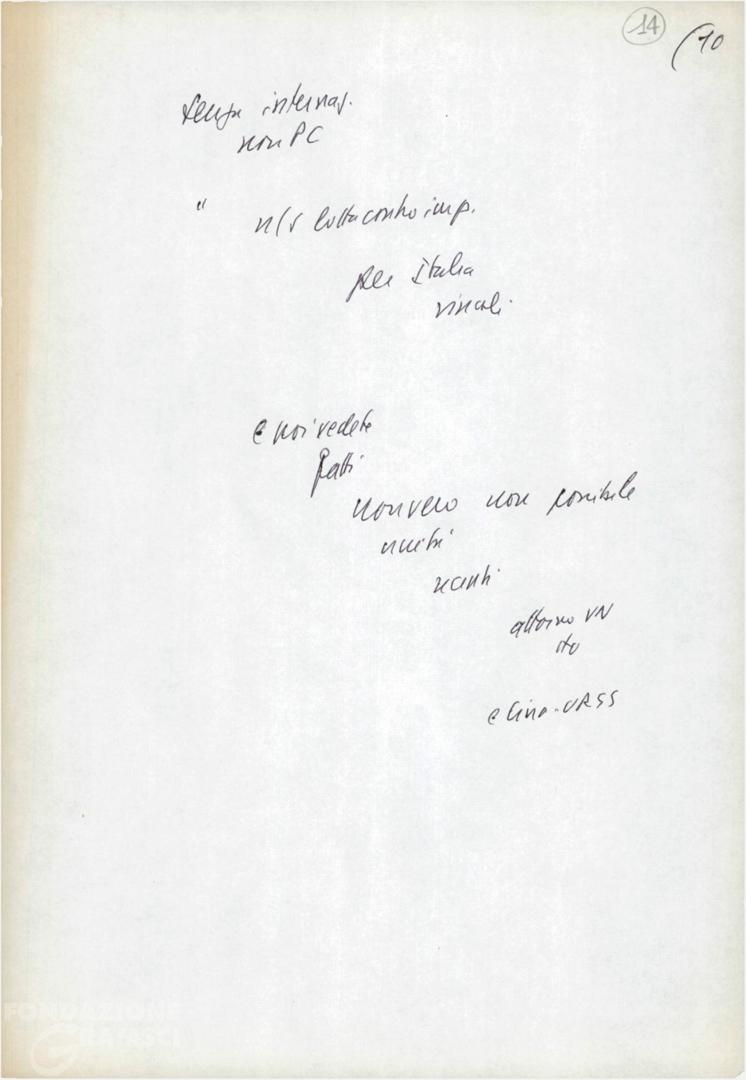 14
(10
senza internaz.
non PC
" n/s lotta contro imp.
per Italia
vincoli
e noi vedete
fatti
non vero non possibile
uniti
attorno VN
e Cina-URSS
FONDAZIONE
GRAMSCI